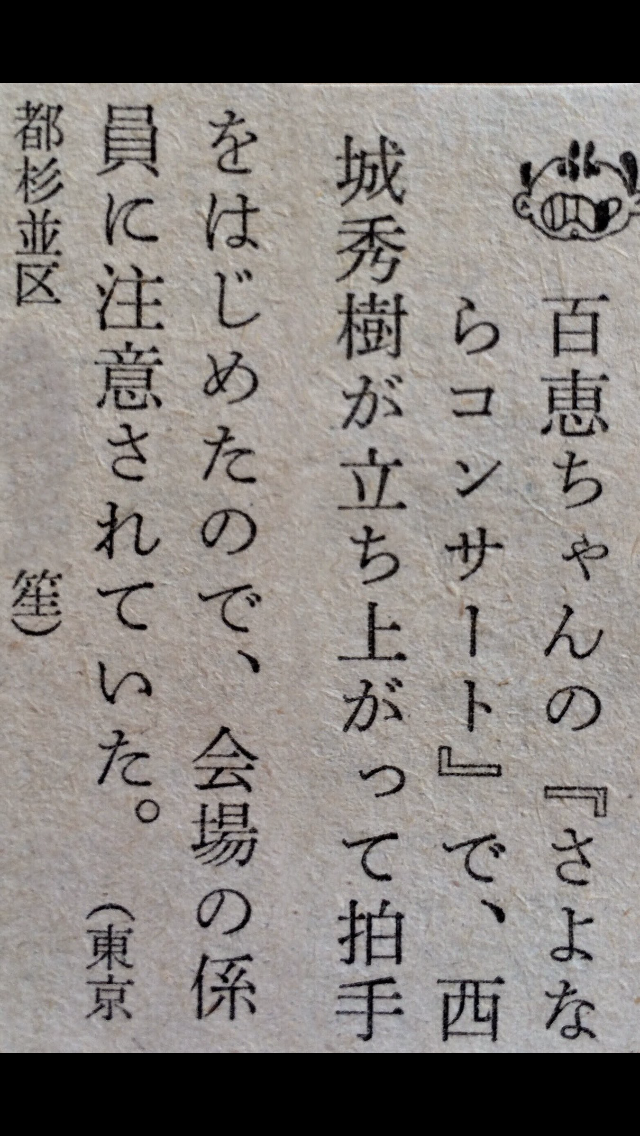 百恵ちゃんの『さよな
らコンサート』で、西
城秀樹が立ち上がって拍手
をはじめたので、会場の係
員に注意されていた。（東京
都杉並区
笙）